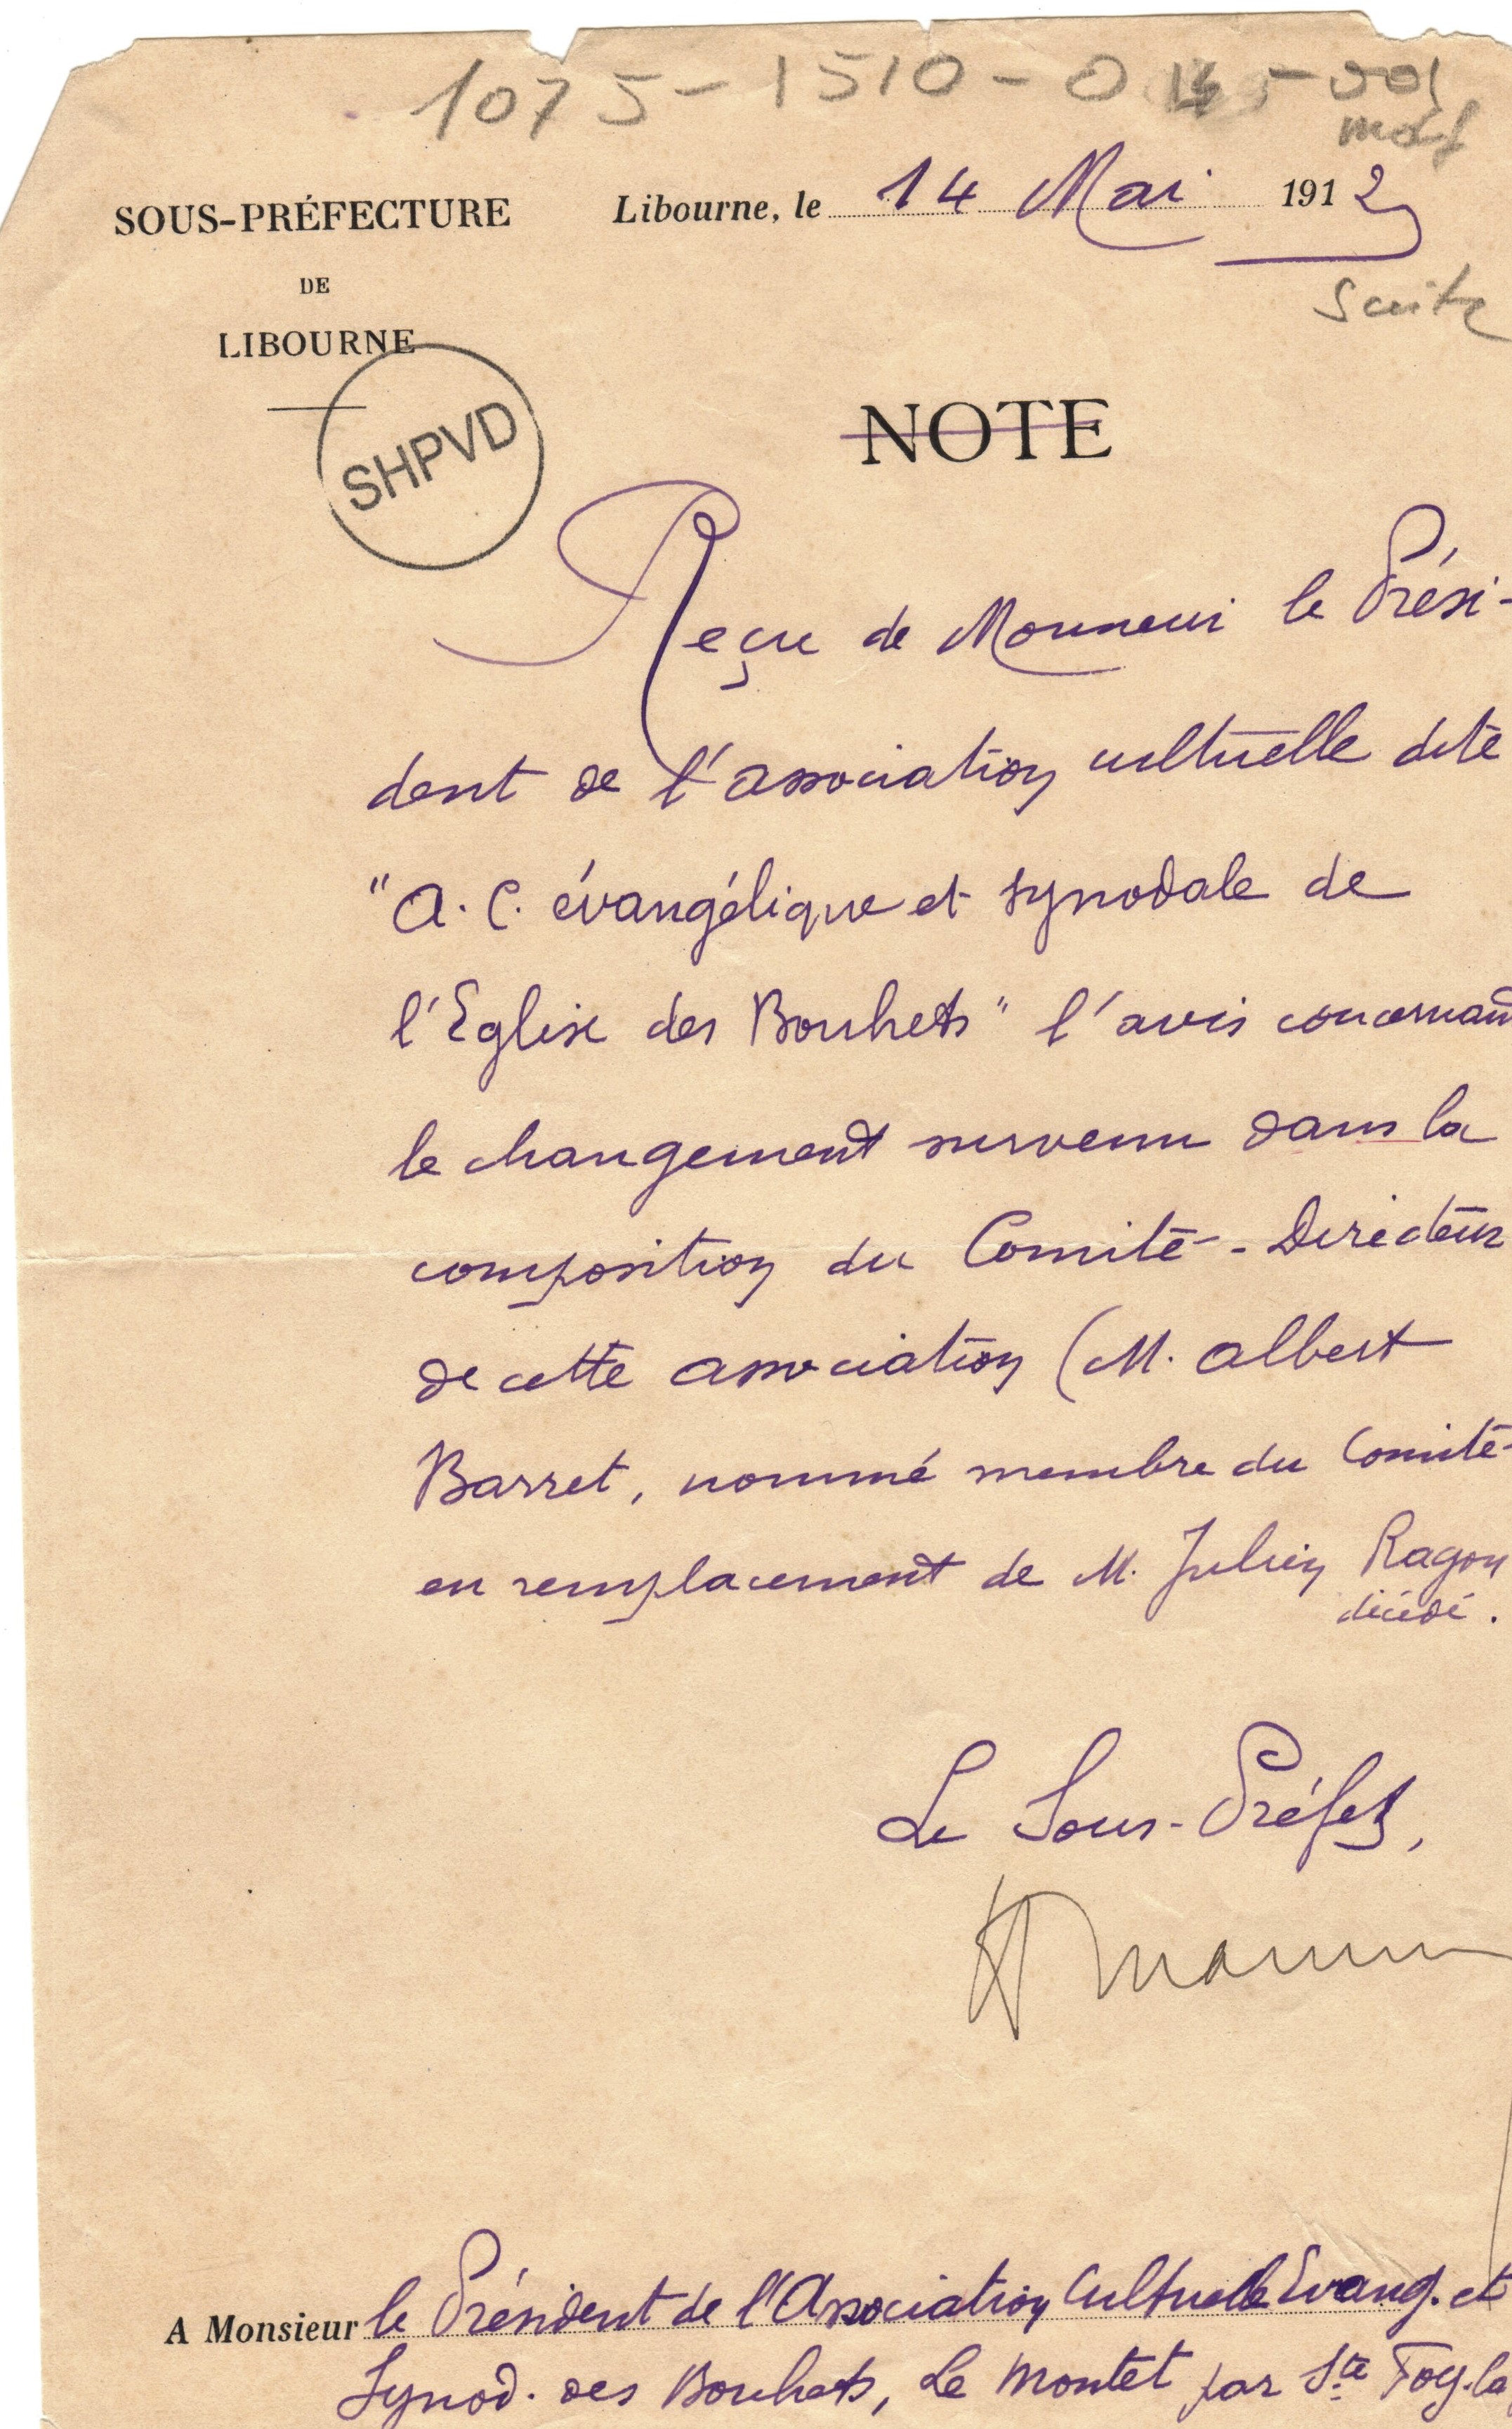 1075-1510-0145-001
SOUS-PRÉFECTURE
DE
LIBOURNE
Libourne, le 14 Mai 1912
Suite
SHPVD
NOTE
Reçu de Monsieur le Prési-
dent de l'association cultuelle dite
"A. C. évangélique et synodale de
l'Eglise des Bouhets" l'avis concernant
le changement survenu dans la
composition du Comité-Directeur
de cette association (M. Albert
Barret, nommé membre du Comité
en remplacement de M. Julien Ragon
décédé.
Le Sous-Préfet,
A Monsieur le Président de l'Association Cultuelle Evang. et
Synod. des Bouhets, Le Montet par Ste Foy-la